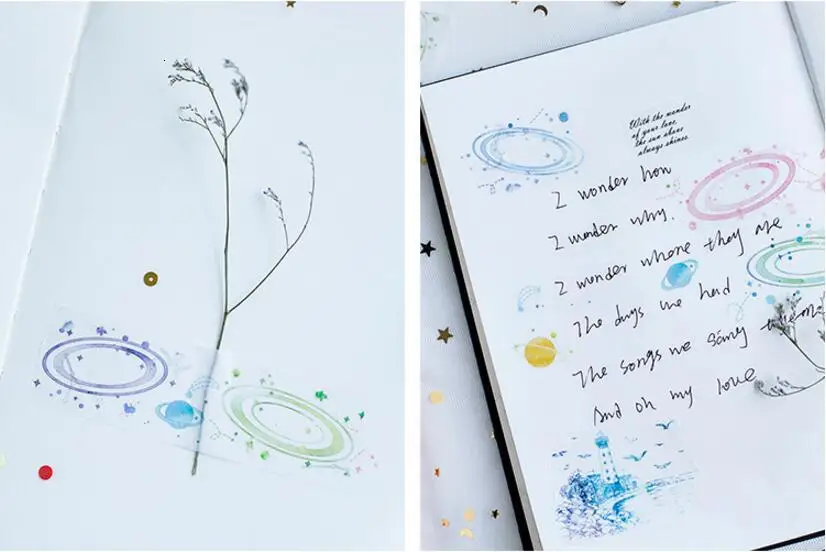 With the wonder
of your love,
the sun above
always shines.
I wonder how
I wonder why.
I wonder where they are
The days we had
The songs we sang
And oh my love